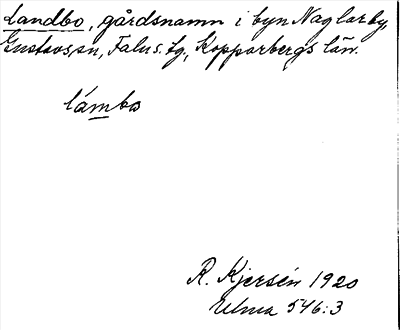 Landbo, gårdsnamn i byn Naglarby,
Gustavs sn, Falu s. tg, Kopparbergs län.
lámbo
R. Kjersén 1920
Ulma 546:3